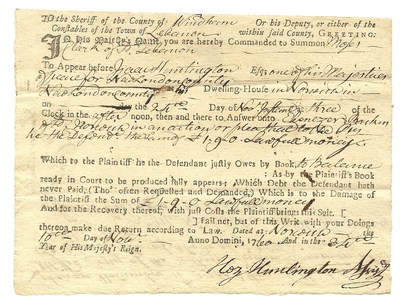 To the Sheriff of the County of Windham Or his Deputy, or either of the
Constables of the Town of Lebanon within said County, GREETING.
In His Majesty's Name, you are hereby Commanded to Summon Moses
Clark of sd. Lebanon
To Appear before Isaac Huntington Esq; one of his Majesties
peace for New London County at his Dwelling-House in Norwich in
New London County on the 24th Day of Novr. Instant at three of the
Clock in the after noon, then and there to Answer unto Ebenezer
of Norwich in an action or plea that to the
he the Defendt. the sum of £1-9-0 Lawfull money
Which to the Plaintiff he the Defendant justly Owes by Book to Balance
: As by the Plaintiff's Book
ready in Court to be produced fully appears; Which Debt the Defendant hath
never Paid, (Tho' often Requested and Demanded,) Which is to the Damage of
the Plaintiff the Sum of £1-9-0 Lawfull money
And for the Recovery thereof, with just Costs the Plaintiff brings this Suit. [
] fail not, but of this Writ with your Doings
thereon make due Return according to Law. Dated at Norwich the
10th Day of Novr. Anno Domini, 1760 And in the 34th
Year of His Majesty's Reign.
Hez. Huntington